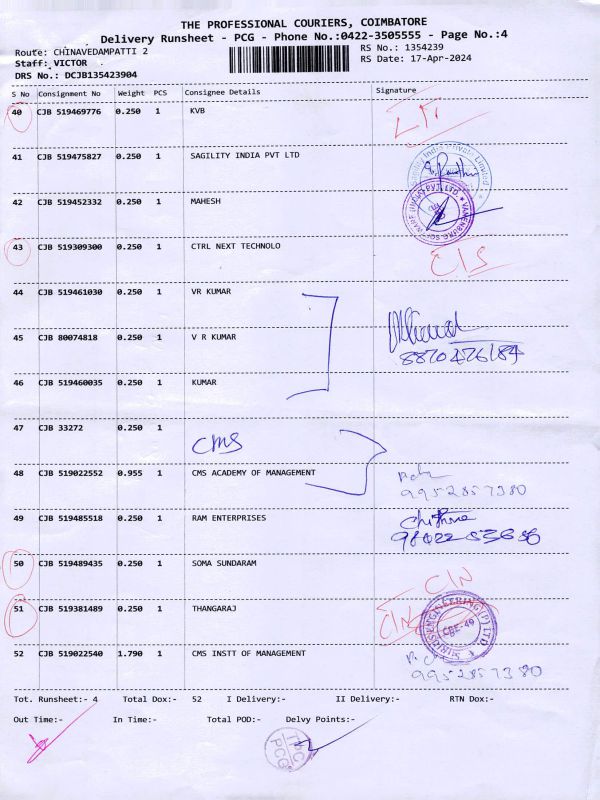 THE PROFESSIONAL COURIERS, COIMBATORE
Delivery Runsheet - PCG - Phone No.:0422-3505555 - Page No.:4
Route: CHINAVEDAMPATTI 2
RS No.: 1354239
Staff: VICTOR
RS Date: 17-Apr-2024
DRS No.: DCJB135423904
S No Consignment No Weight PCS Consignee Details Signature
40 CJB 519469776 0.250 1 KVB
41 CJB 519475827 0.250 1 SAGILITY INDIA PVT LTD
42 CJB 519452332 0.250 1 MAHESH
43 CJB 519309300 0.250 1 CTRL NEXT TECHNOLO
C/S
44 CJB 519461030 0.250 1 VR KUMAR
45 CJB 80074818 0.250 1 V R KUMAR
8870476184
46 CJB 519460035 0.250 1 KUMAR
47 CJB 33272 0.250 1
CMS
48 CJB 519022552 0.955 1 CMS ACADEMY OF MANAGEMENT
9952857380
49 CJB 519485518 0.250 1 RAM ENTERPRISES
Chithra
50 CJB 519489435 0.250 1 SOMA SUNDARAM
C/N
51 CJB 519381489 0.250 1 THANGARAJ
C/N
ENGINEERING (P) LTD.
CBE-49
52 CJB 519022540 1.790 1 CMS INSTT OF MANAGEMENT
9952857380
Tot. Runsheet:- 4 Total Dox:- 52 I Delivery:- II Delivery:- RTN Dox:-
Out Time:- In Time:- Total POD:- Delvy Points:-
TPC
PCG